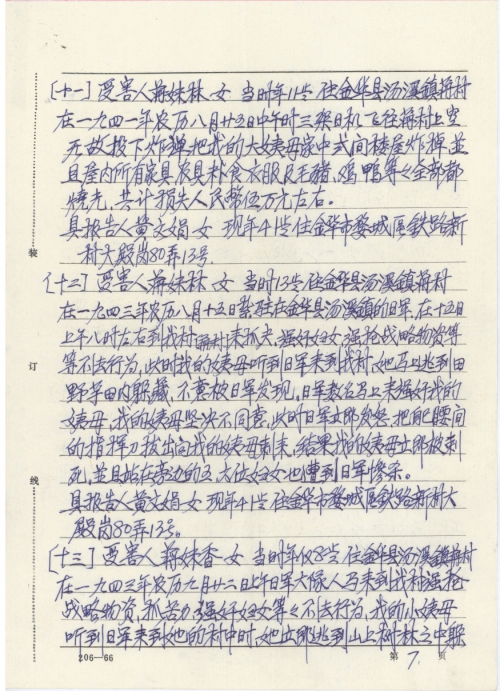 [十一] 受害人蒋妹林 女 当时年11岁 住金华县汤溪镇蒋村
在一九四一年农历八月廿五日中午时三架日机飞往蒋村上空
无故投下炸弹把我的大姨母家中式间楼屋炸掉,並
且屋内所有家具农具村食衣服及毛猪、鸡鸭等々全部都
烧光,共计损失人民幣伍万元左右。
具报告人黄文娟 女 现年41岁住金华市婺城区铁路新
村大殿岗80弄13号.
[十二] 受害人蒋妹林 女 当时13岁住金华县汤溪鎮蒋村
在一九四三年农历八月十五日驻在金华县汤溪鎮的日軍,在十五日
上午八时左右到我村蒋村来抓夫,强奸妇女,强抢战略物资等
等不法行为,此时我的姨母听到日军来到我村,她马上逃到田
野草田内躲藏,不意被日军发现,日军数名马上来强奸我的
姨母,我的姨母坚决不同意,此时日军立即发怒,把腰间
的指挥刀拔出向我的姨母刺来,结果我的姨母立即被刺
死,並且站在旁边的五、六位妇女也遭到日军惨杀。
具报告人黄文娟 女 现年41岁住金华市婺城区铁路新村大
殿岗80弄13号。
[十三] 受害人蒋妹香 女 当时年仅8岁 住金华县汤溪鎮蒋村
在一九四三年农历九月廿二日上午日军大候人马来到我村强抢
战略物资,抓苦力,强奸妇女等々不法行为,我的小姨母
听到日军来到她的村中时,她立即逃到山上树林之中躲
装
订
线
206—66
第7.页